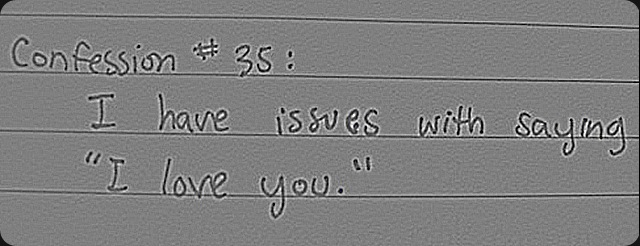 Confession # 35:
I have issues with saying
"I love you."